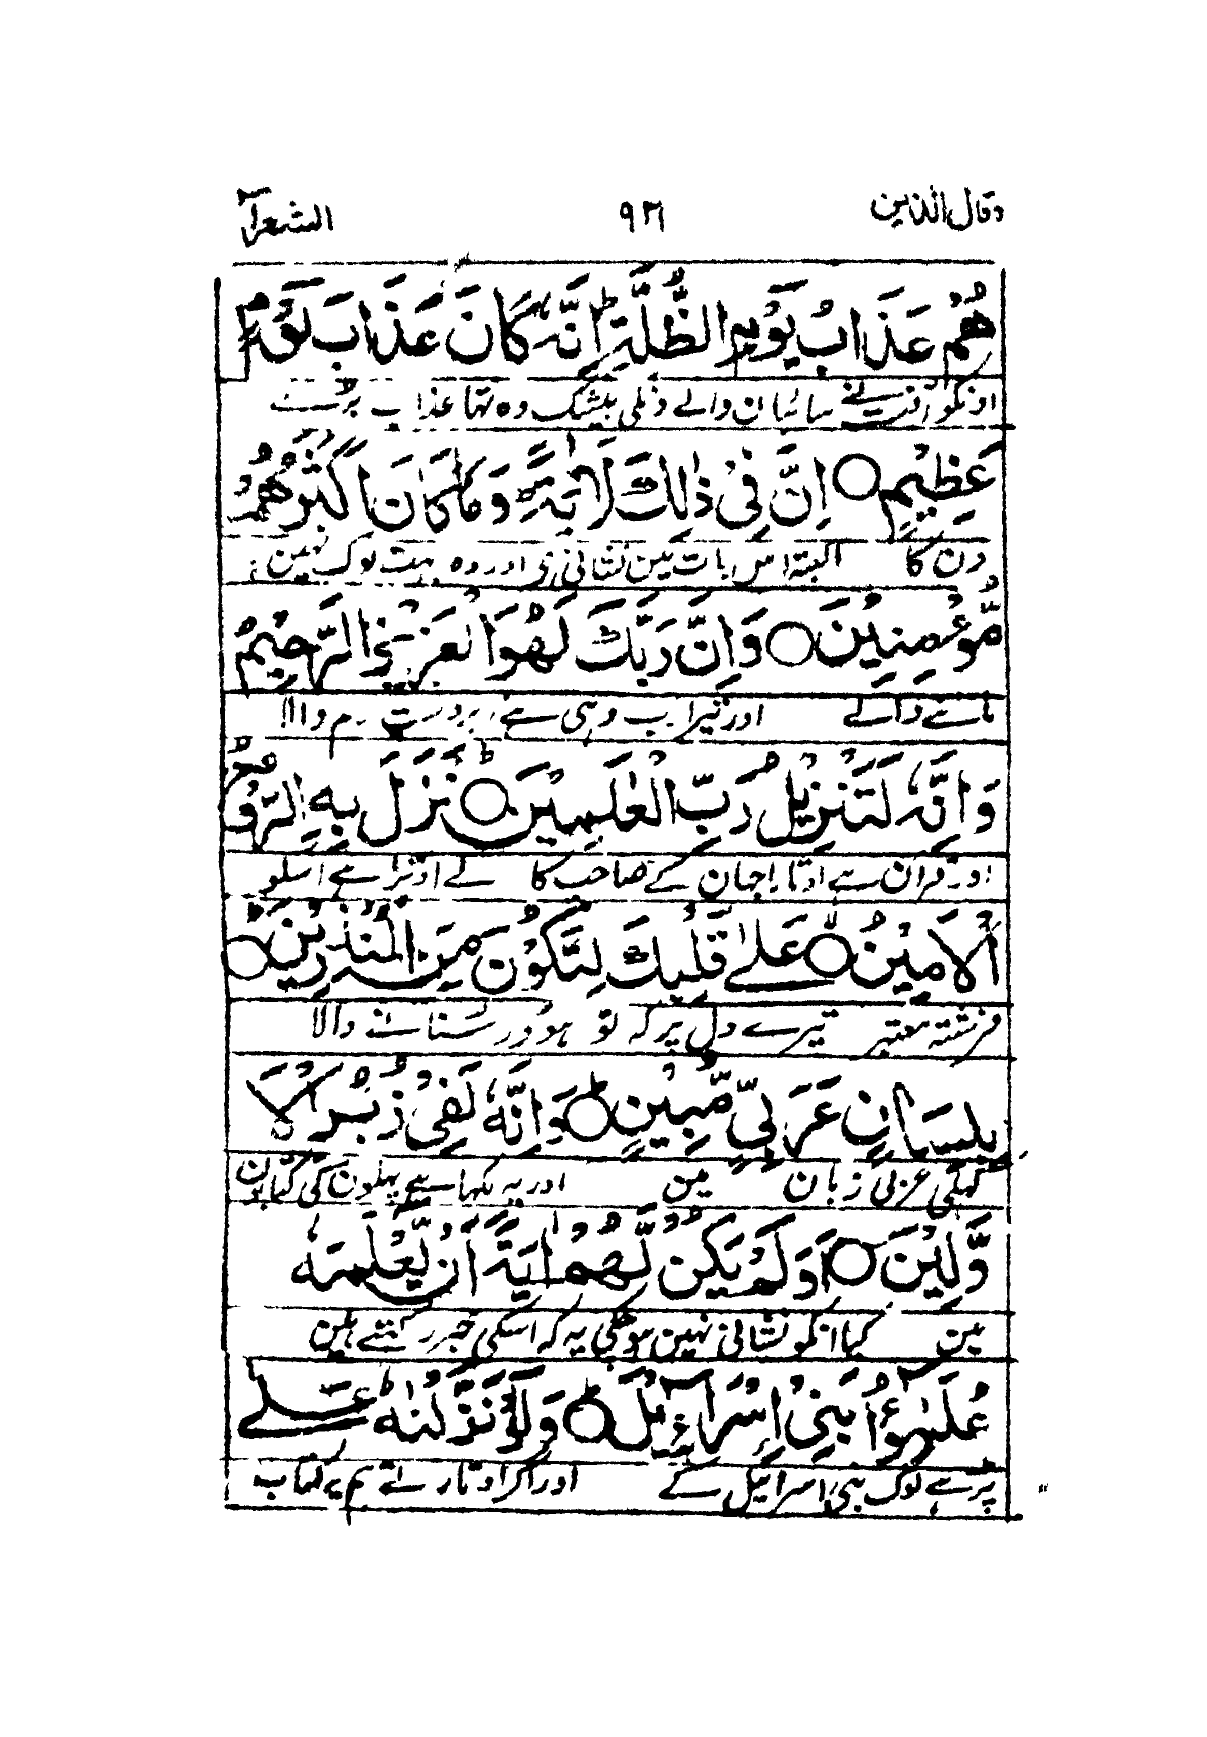 وقال الذین ۹۲ الشعرآ
هُمْ عَذَابُ يَوْمِ الظُّلَّةِ ؕ اِنَّهٗ كَانَ عَذَابَ يَوْمٍ
اونکو آفت نے سائبان والے دنکی بیشک وہ تھا عذاب بڑے
عَظِيْمٍ ○ اِنَّ فِيْ ذٰلِكَ لَاٰيَةً ؕ وَمَا كَانَ اَكْثَرُهُمْ
دن کا البتہ اس بات مین نشانی ہی اور وہ بہت لوگ نہین
مُّؤْمِنِيْنَ ○ وَاِنَّ رَبَّكَ لَهُوَ الْعَزِيْزُ الرَّحِيْمُ
ماننے والے اور تیرا رب وہی ہے زبردست رحم والا
وَاِنَّهٗ لَتَنْزِيْلُ رَبِّ الْعٰلَمِيْنَ ○ؕ نَزَلَ بِهِ الرُّوْحُ
اور قرآن ہے اوتارا جہان کے صاحب کا لے اوترا ہے اسکو
الْاَمِيْنُ ○ۙ عَلٰى قَلْبِكَ لِتَكُوْنَ مِنَ الْمُنْذِرِيْنَ ○ؕ
فرشتہ معتبر تیرے دل پر کہ تو ہو ڈر سنانے والا
بِلِسَانٍ عَرَبِيٍّ مُّبِيْنٍ ○ؕ وَاِنَّهٗ لَفِيْ زُبُرِ الْاَ
کھلی عربی زبان مین اور یہ لکھا ہے پہلون کی کتابون
وَّلِيْنَ ○ اَوَلَمْ يَكُنْ لَّهُمْ اٰيَةً اَنْ يَّعْلَمَهٗ
مین کیا انکو نشانی نہین ہوچکی یہ کہ اسکی خبر رکھتے ہین
عُلَمٰٓؤُا بَنِيْۤ اِسْرَآءِيْلَ ○ؕ وَلَوْ نَزَّلْنٰهُ عَلٰى
پڑھے لوگ بنی اسرائیل کے اور اگر اوتارتے ہم یہ کتاب